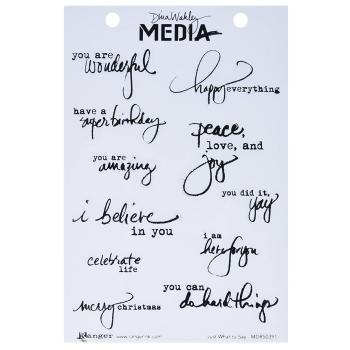 Dina Wakley
MEDIA
you are
wonderful
happy everything
have a
super birthday
peace,
love, and
joy
you are
amazing
you did it,
yay
i believe
in you
i am
here for you
celebrate
life
you can
do hard things
merry christmas
ranger www.rangerink.com
Just What to Say - MDR50391